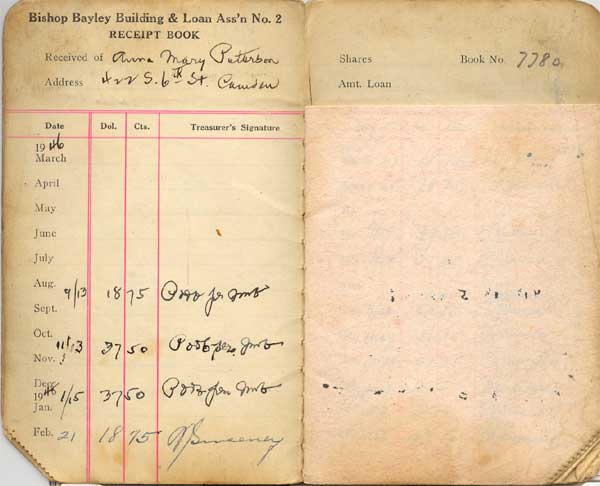 Bishop Bayley Building & Loan Ass'n No. 2
RECEIPT BOOK
Received of Anna Mary Patterson
Address 422 S. 6th St. Camden
Date Dol. Cts. Treasurer's Signature
1946
March
April
May
June
July
Aug.
9/13 18 75
Sept.
Oct.
11/13 37 50
Nov.
Dec.
19
1/15 37 50
Jan.
Feb. 21 18 75 Sweeney
Shares Book No. 7780
Amt. Loan